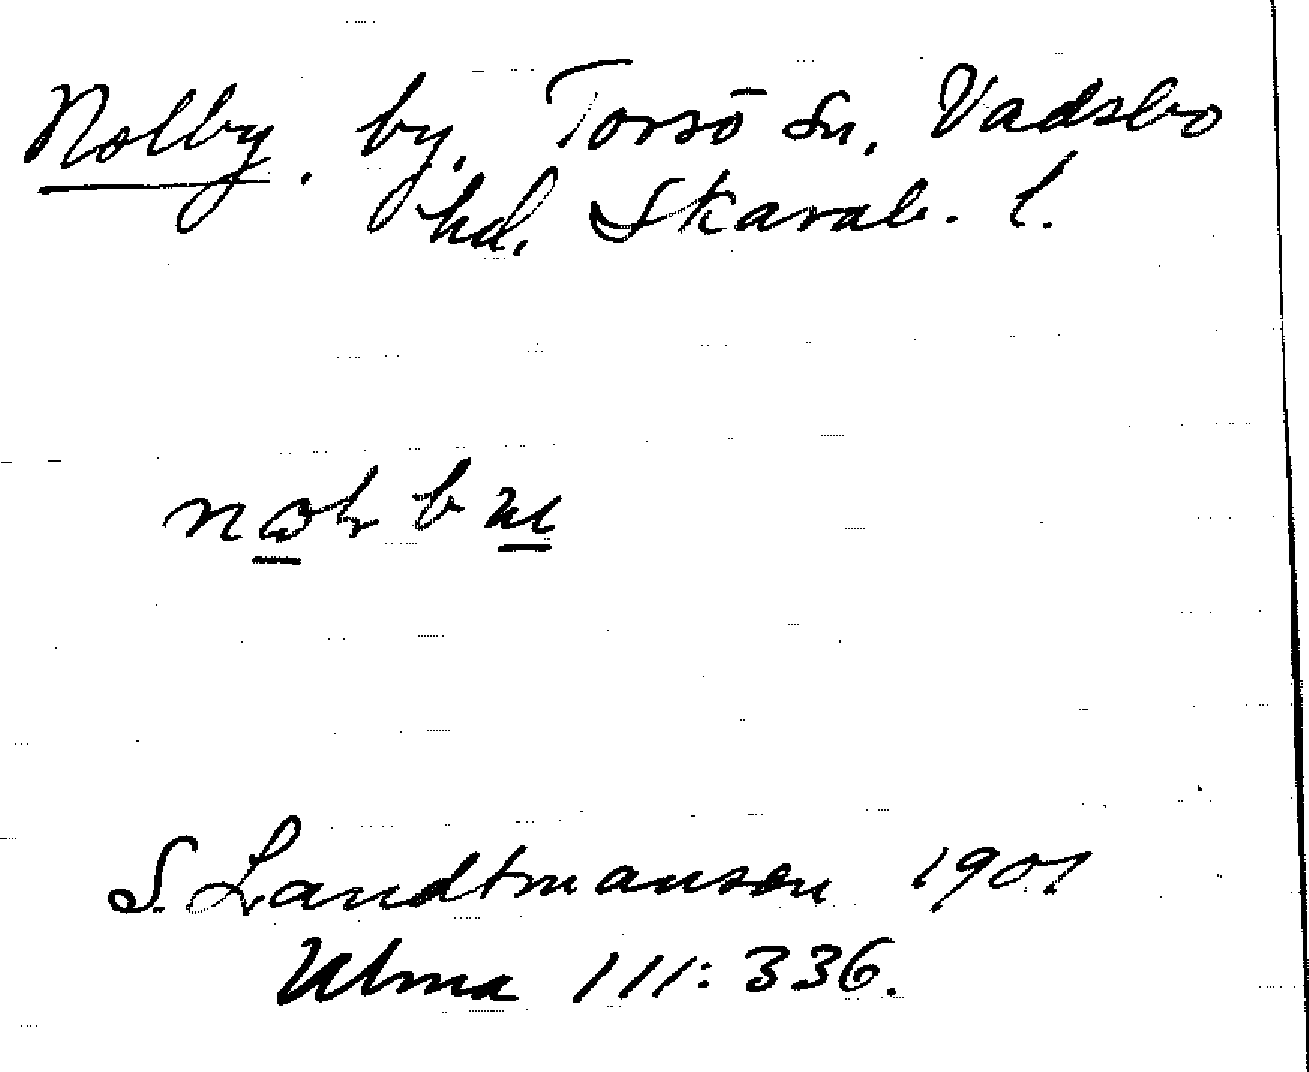 Nolby. by. Torsö sn, Vadsbo
hd, Skarab. l.
S. Landtmanson 1901
Ulma 111: 336.